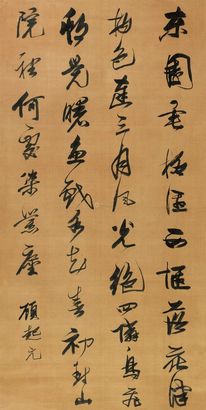 東園垂柳徑西堰落花津
物色連三月風光絕四鄰鳥飛
村覺曙魚戲水知春初晴山
院裡何處染囂塵 顧起元